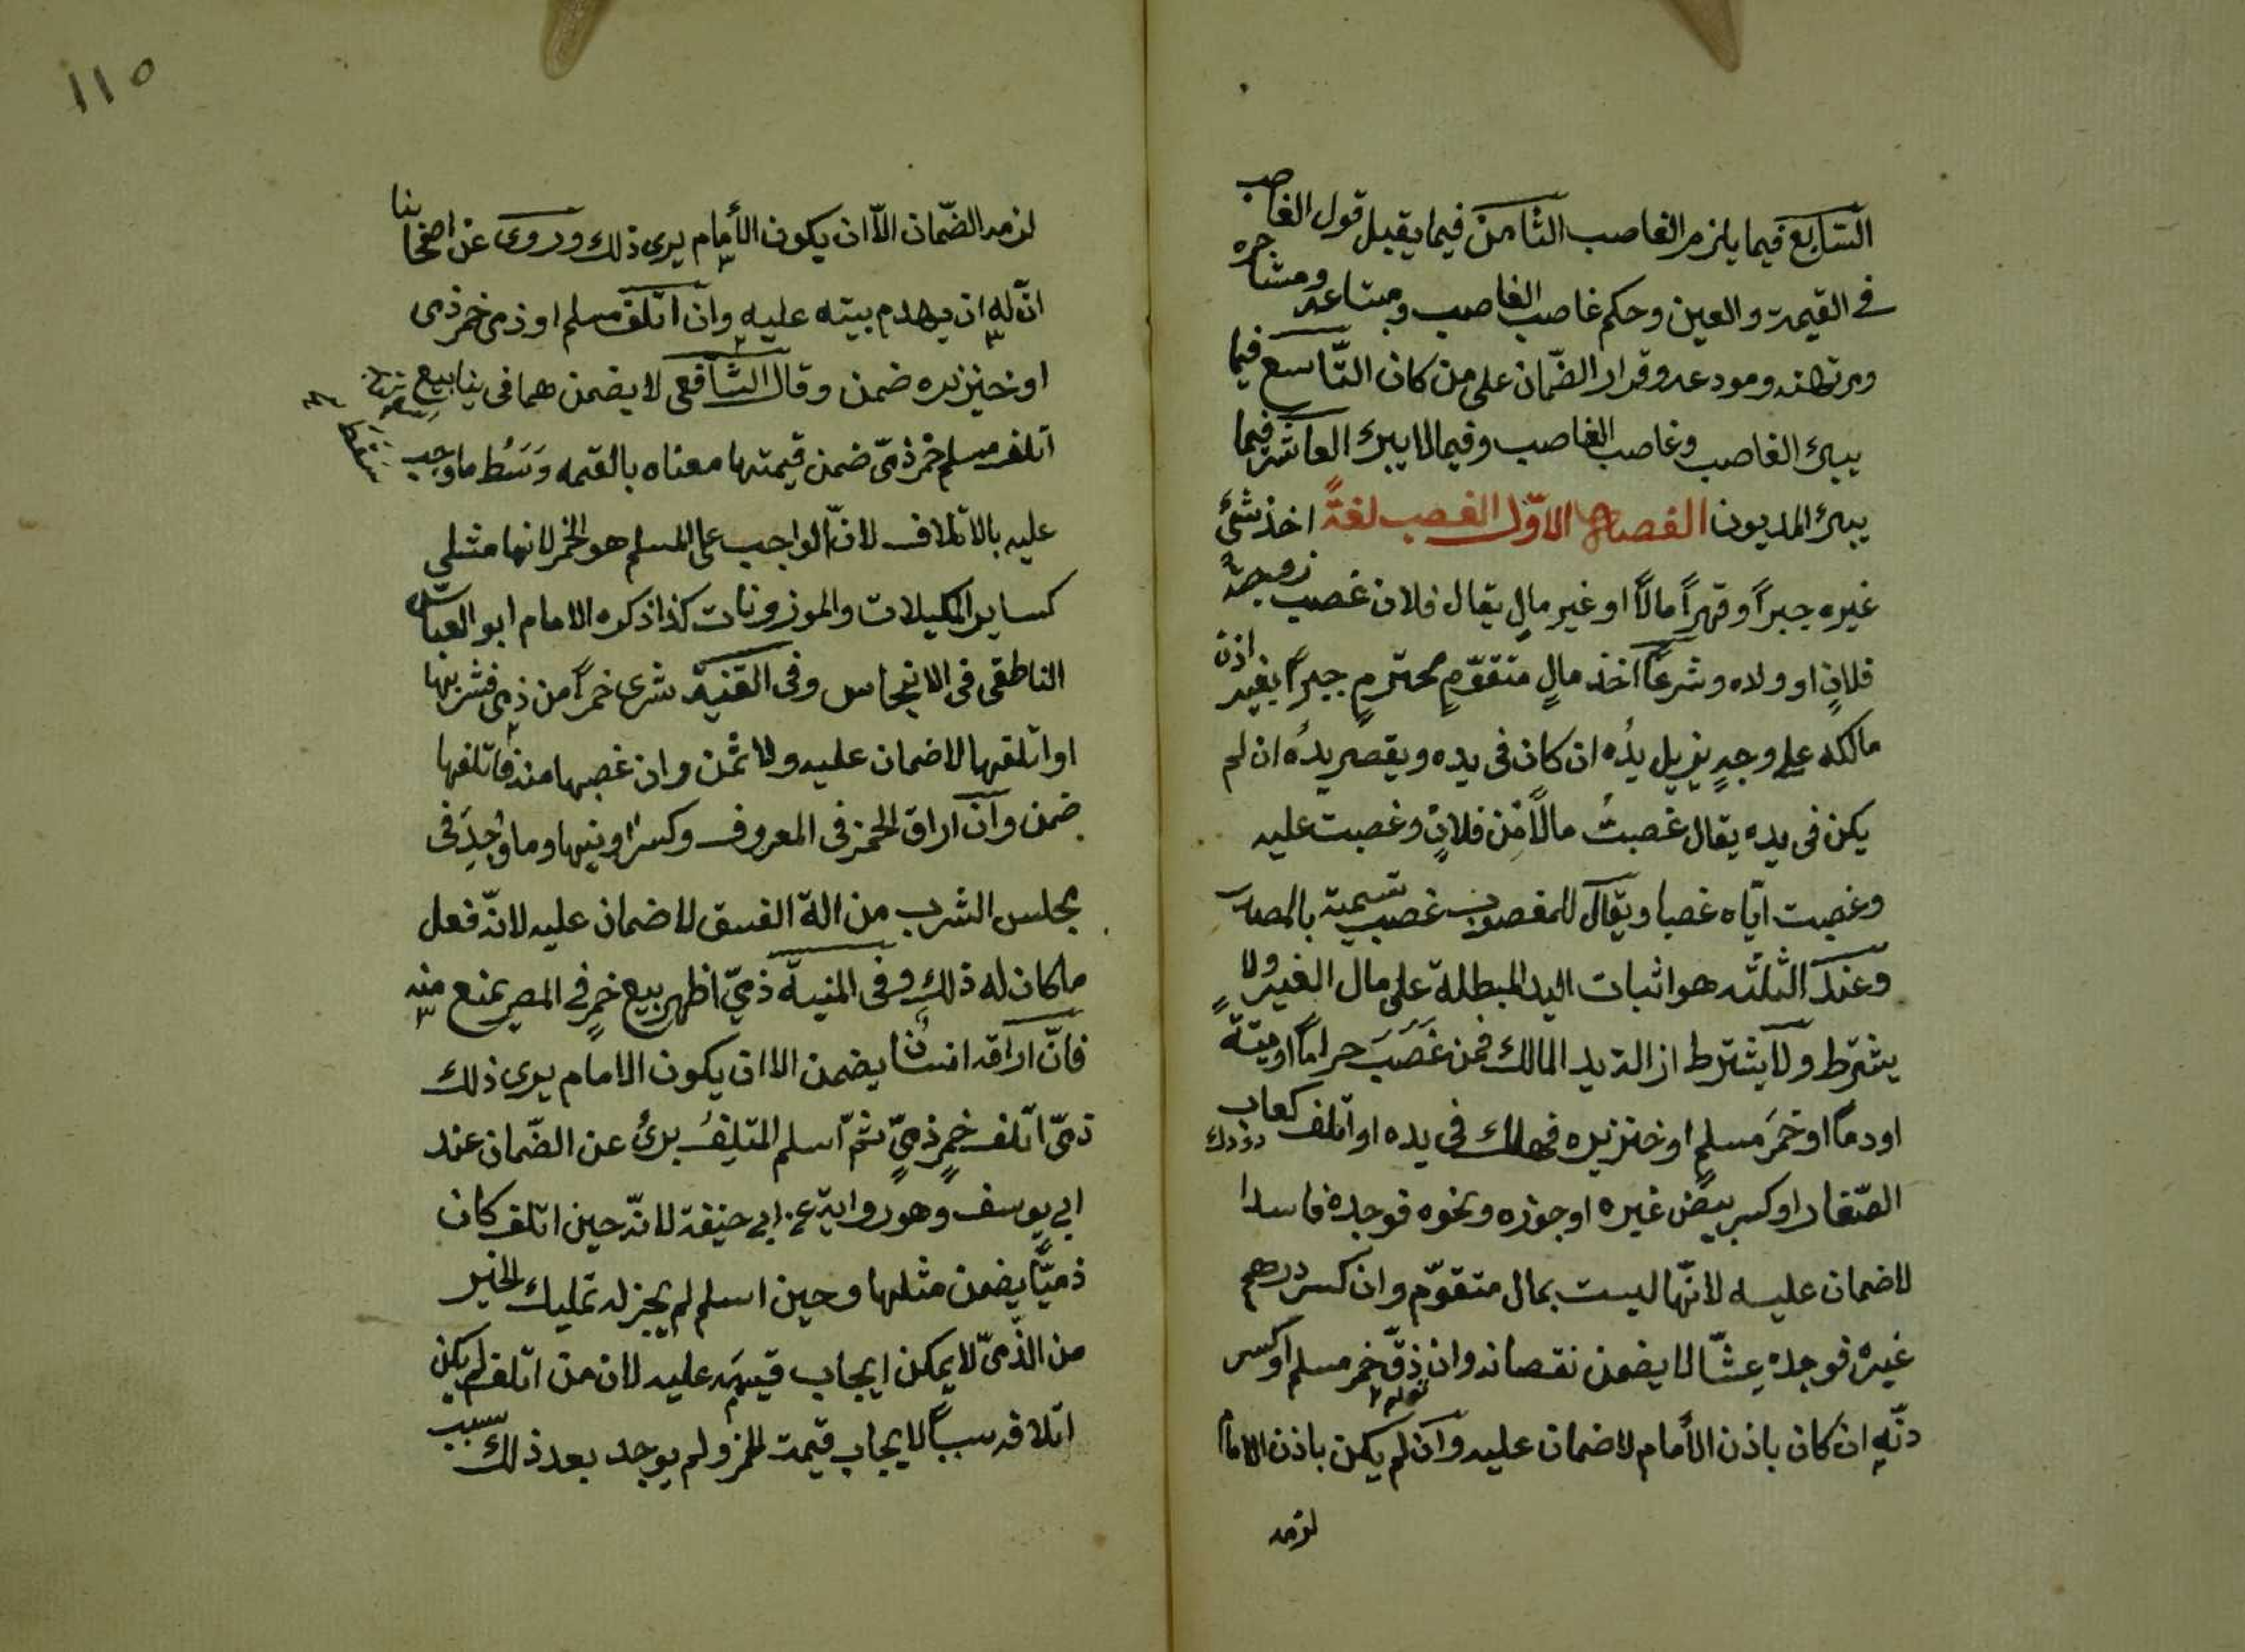 السابع فيما يلزم الغاصب الثامن فيما يقبل قول الغاصب
في القيمة والعين وحكم غاصب الغاصب ومبتاعه ومستأجره
ومرتهنه ومودعه وقرار الضّمان على من كان التّاسع فيما
يبرئ الغاصب وغاصب الغاصب وفيما لا يبرئ العاشر فيما
يبرئ المديون الفصل الاوّل الغصب لغةً اخذ شئ
غيره جبراً وقهراً مالاً او غير مالٍ يقال فلان غصب زوجة
فلانٍ او ولاه وشرعاً اخذ مالٍ متقوّمٍ محترمٍ جبراً بغير اذن
مالكه على وجهٍ يزيل يدُه ان كان فى يده ويقصر يدُه ان لم
يكن فى يده يقال غصبتُ مالاً من فلانٍ وغصبت عليه
وغصبت ايّاه غصبا ويقال للمغصوب غصب تسمية بالمصدر
وعند الثلثه هو اثبات اليد المبطلة على مال الغير ولا
يشترط ولا يشترط ازالة يد المالك فمن غَصَبَ حراماً او ميتةً
او دماً او خمَر مسلمٍ او خنزيره فهلك فى يده او اتلف كعاب
الصّغار او كسر بيض غيره او جوزه ونحوه فوجده فاسدا
لا ضمان عليه لانّها ليست بمال متقوّم وان كسر درهم
غيره فوجده غشّا لا يضمن نقصانه وان زقّ خمر مسلم او كسر
دنّه ان كان باذن الأمام لا ضمان عليه وان لم يكن باذن الامام
لزمه
١١٥
لزمه الضّمان الاّ ان يكون الأمام يرى ذلك وروى عن اصحابنا
انّ له ان يهدم بيته عليه وان اتلف مسلم او ذمى خمر ذمى
او خنزيره ضمن وقال الشّافعى لا يضمن هما فى ينابيع
اتلف مسلم خمر ذمّى ضمن قيمتها معناه بالقيمه وَسَط ما وجب
عليه بالاتلاف لانّ الواجب على المسلم هو الخمر لانها مثلى
كساير المكيلات والموزونات كذا ذكره الامام ابو العباس
الناطقى فى الاجناس وفى القنية شرى خمراً من ذمى فشربها
او اتلفها لا ضمان عليه ولا ثمن وان غصبها منه فاتلفها
ضمن وان اراق الخمر فى المعروف وكسر اونيها وما وُجِدَ فى
مجلس الشرب من الة الفسق لا ضمان عليه لانّه فعل
ما كان له ذلك وفى المنية ذميّ اظهر بيع خمرٍ فى المصر يمنع منه
فانّ اراقه انسانٌ يضمن الا ان يكون الامام يرى ذلك
ذمّى اتلف خمر ذميٍّ ثمّ اسلم المتلِفُ برئ عن الضّمان عند
ابى يوسف وهو رواية عن ابى حنيفة لانّه حين اتلف كان
ذميًّا يضمن مثلها وحين اسلم لم يجز له تمليك الخمر
من الذّمىّ لا يمكن ايجاب قيمته عليه لان من اتلف لم يكن
اتلافه سبباً لايجاب قيمت للخمر ولم يوجد بعد ذلك سبب